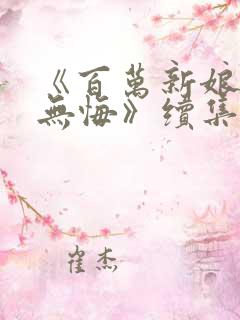 《百萬新娘
無悔》續集
崔杰